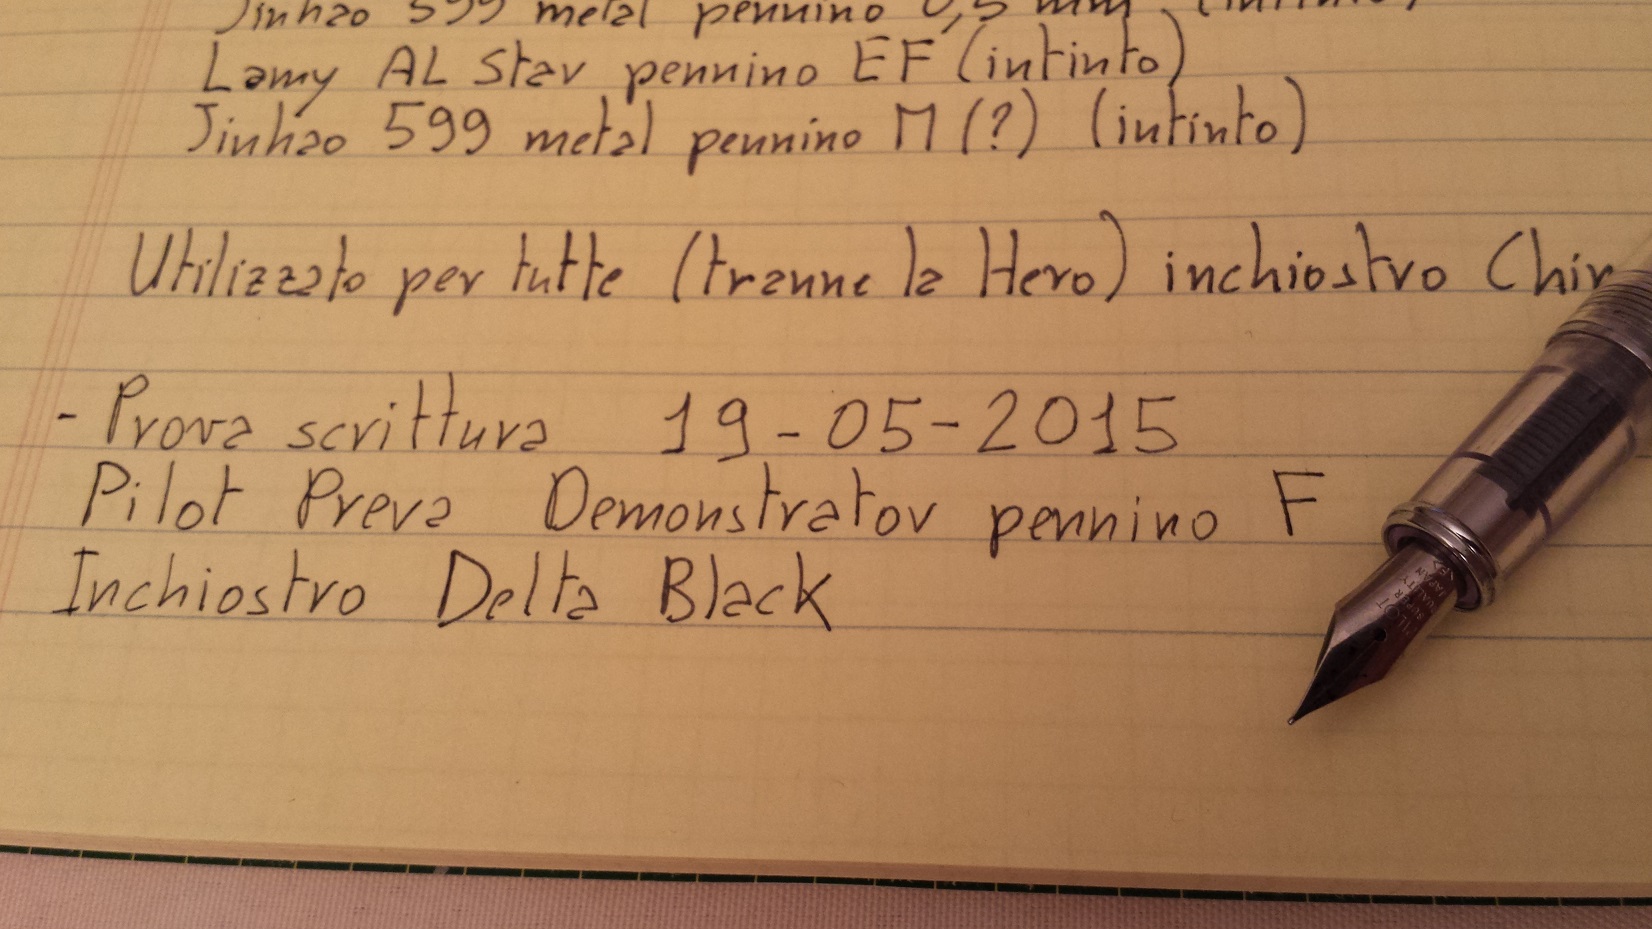 Jinhao 599 metal pennino 0,5 mm (intinto)
Lamy AL Star pennino EF (intinto)
Jinhao 599 metal pennino M (?) (intinto)
Utilizzato per tutte (tranne la Hero) inchiostro Chin
- Prova scrittura 19-05-2015
Pilot Prera Demonstrator pennino F
Inchiostro Delta Black
PILOT
SUPER
QUALITY
JAPAN
<F>